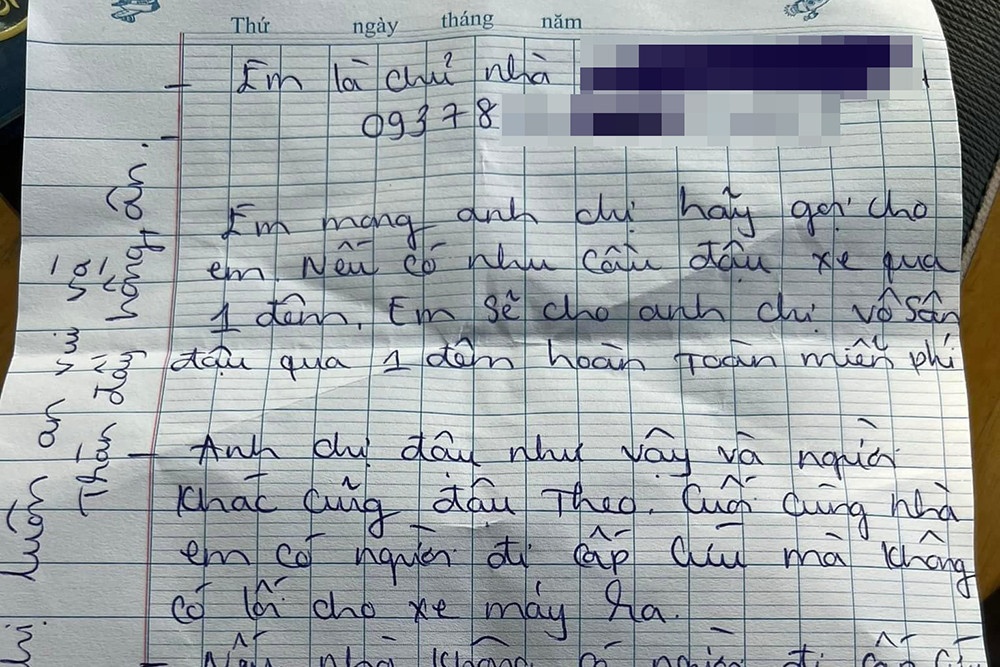 Thứ ngày tháng năm
- Em là chủ nhà
09378
Em mong anh chị hãy gọi cho
em. Nếu có nhu cầu đậu xe qua
1 đêm. Em sẽ cho anh chị vô sân
đậu qua 1 đêm hoàn toàn miễn phí
- Anh chị đậu như vậy và người
khác cũng đậu theo. Cuối cùng nhà
em có người đi cấp cứu mà không
có lối cho xe máy ra.
- Nếu nhà không có người đi cấp
luôn an vui và
Tràn đầy hồng ân.